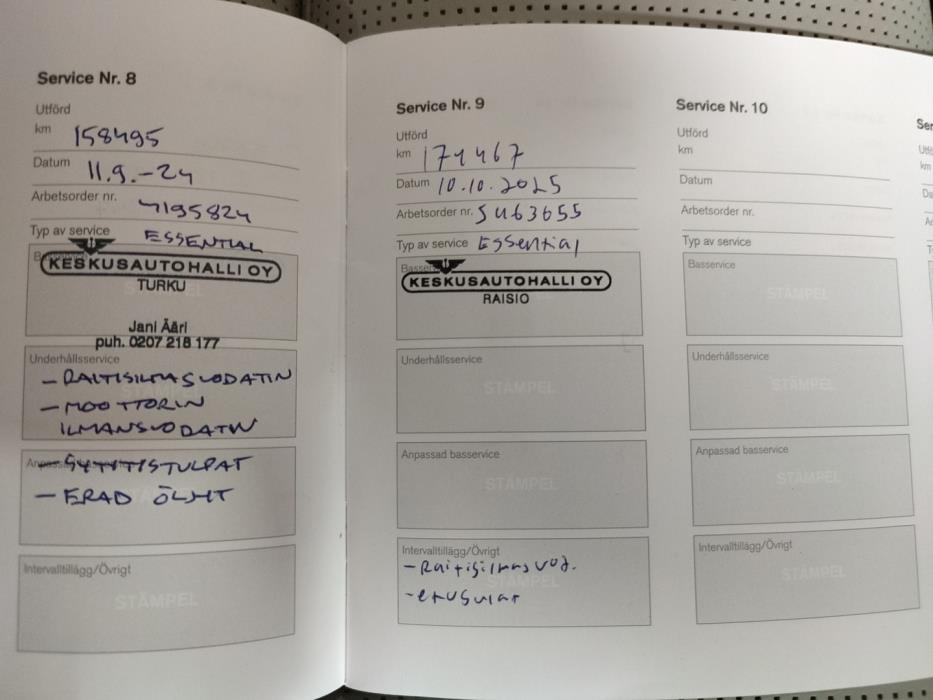 Service Nr. 8
Utförd
km 158495
Datum 11.9.-24
Arbetsorder nr. 4195824
Typ av service ESSENTIAL
KESKUSAUTOHALLI OY
TURKU
STÄMPEL
Jani Ääri
puh. 0207 218 177
Underhållsservice
- RAITISILMASUODATIN
- MOOTTORIN
ILMANSUODATIN
- SYTYTISTULPAT
- ERAD ÖLJYT
Intervalltillägg/Övrigt
STÄMPEL
Service Nr. 9
Utförd
km 171467
Datum 10.10.2025
Arbetsorder nr. 5463655
Typ av service Essential
KESKUSAUTOHALLI OY
RAISIO
Underhållsservice
STÄMPEL
Anpassad basservice
STÄMPEL
Intervalltillägg/Övrigt
- Raitisilmasuod.
Service Nr. 10
Utförd
km
Datum
Arbetsorder nr.
Typ av service
Basservice
STÄMPEL
Underhållsservice
STÄMPEL
Anpassad basservice
STÄMPEL
Intervalltillägg/Övrigt
STÄMPEL
Ser
Utf
km
Da